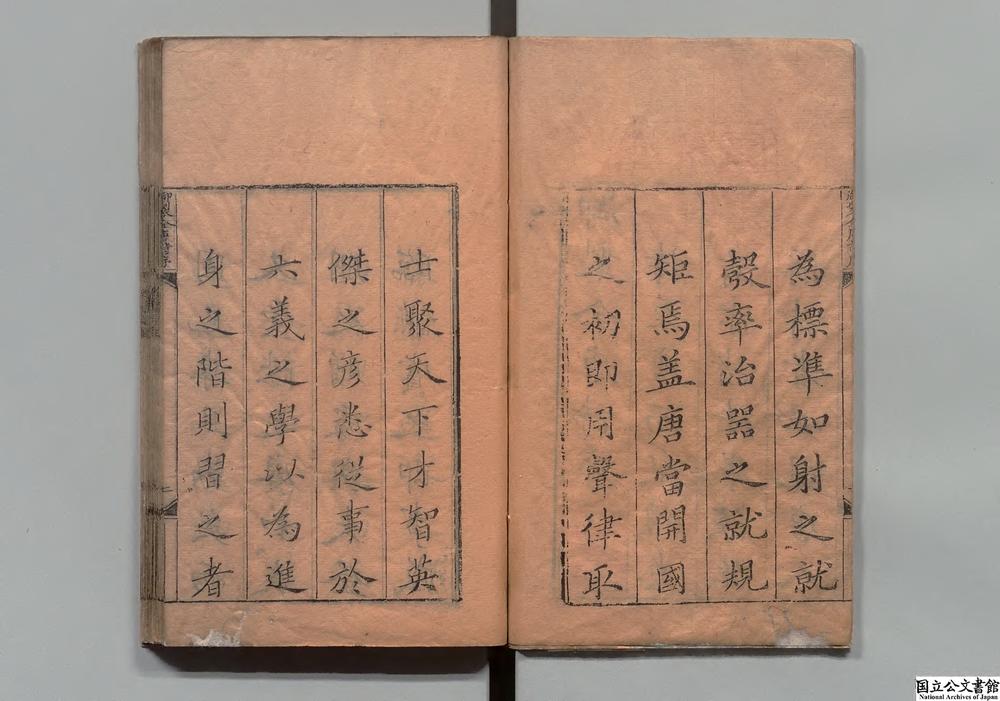 為標準如射之就
彀率治器之就規
矩焉盖唐當開國
之初即用聲律取
士聚天下才智英
傑之彦悉從事於
六義之學以為進
身之階則習之者
国立公文書館
National Archives of Japan